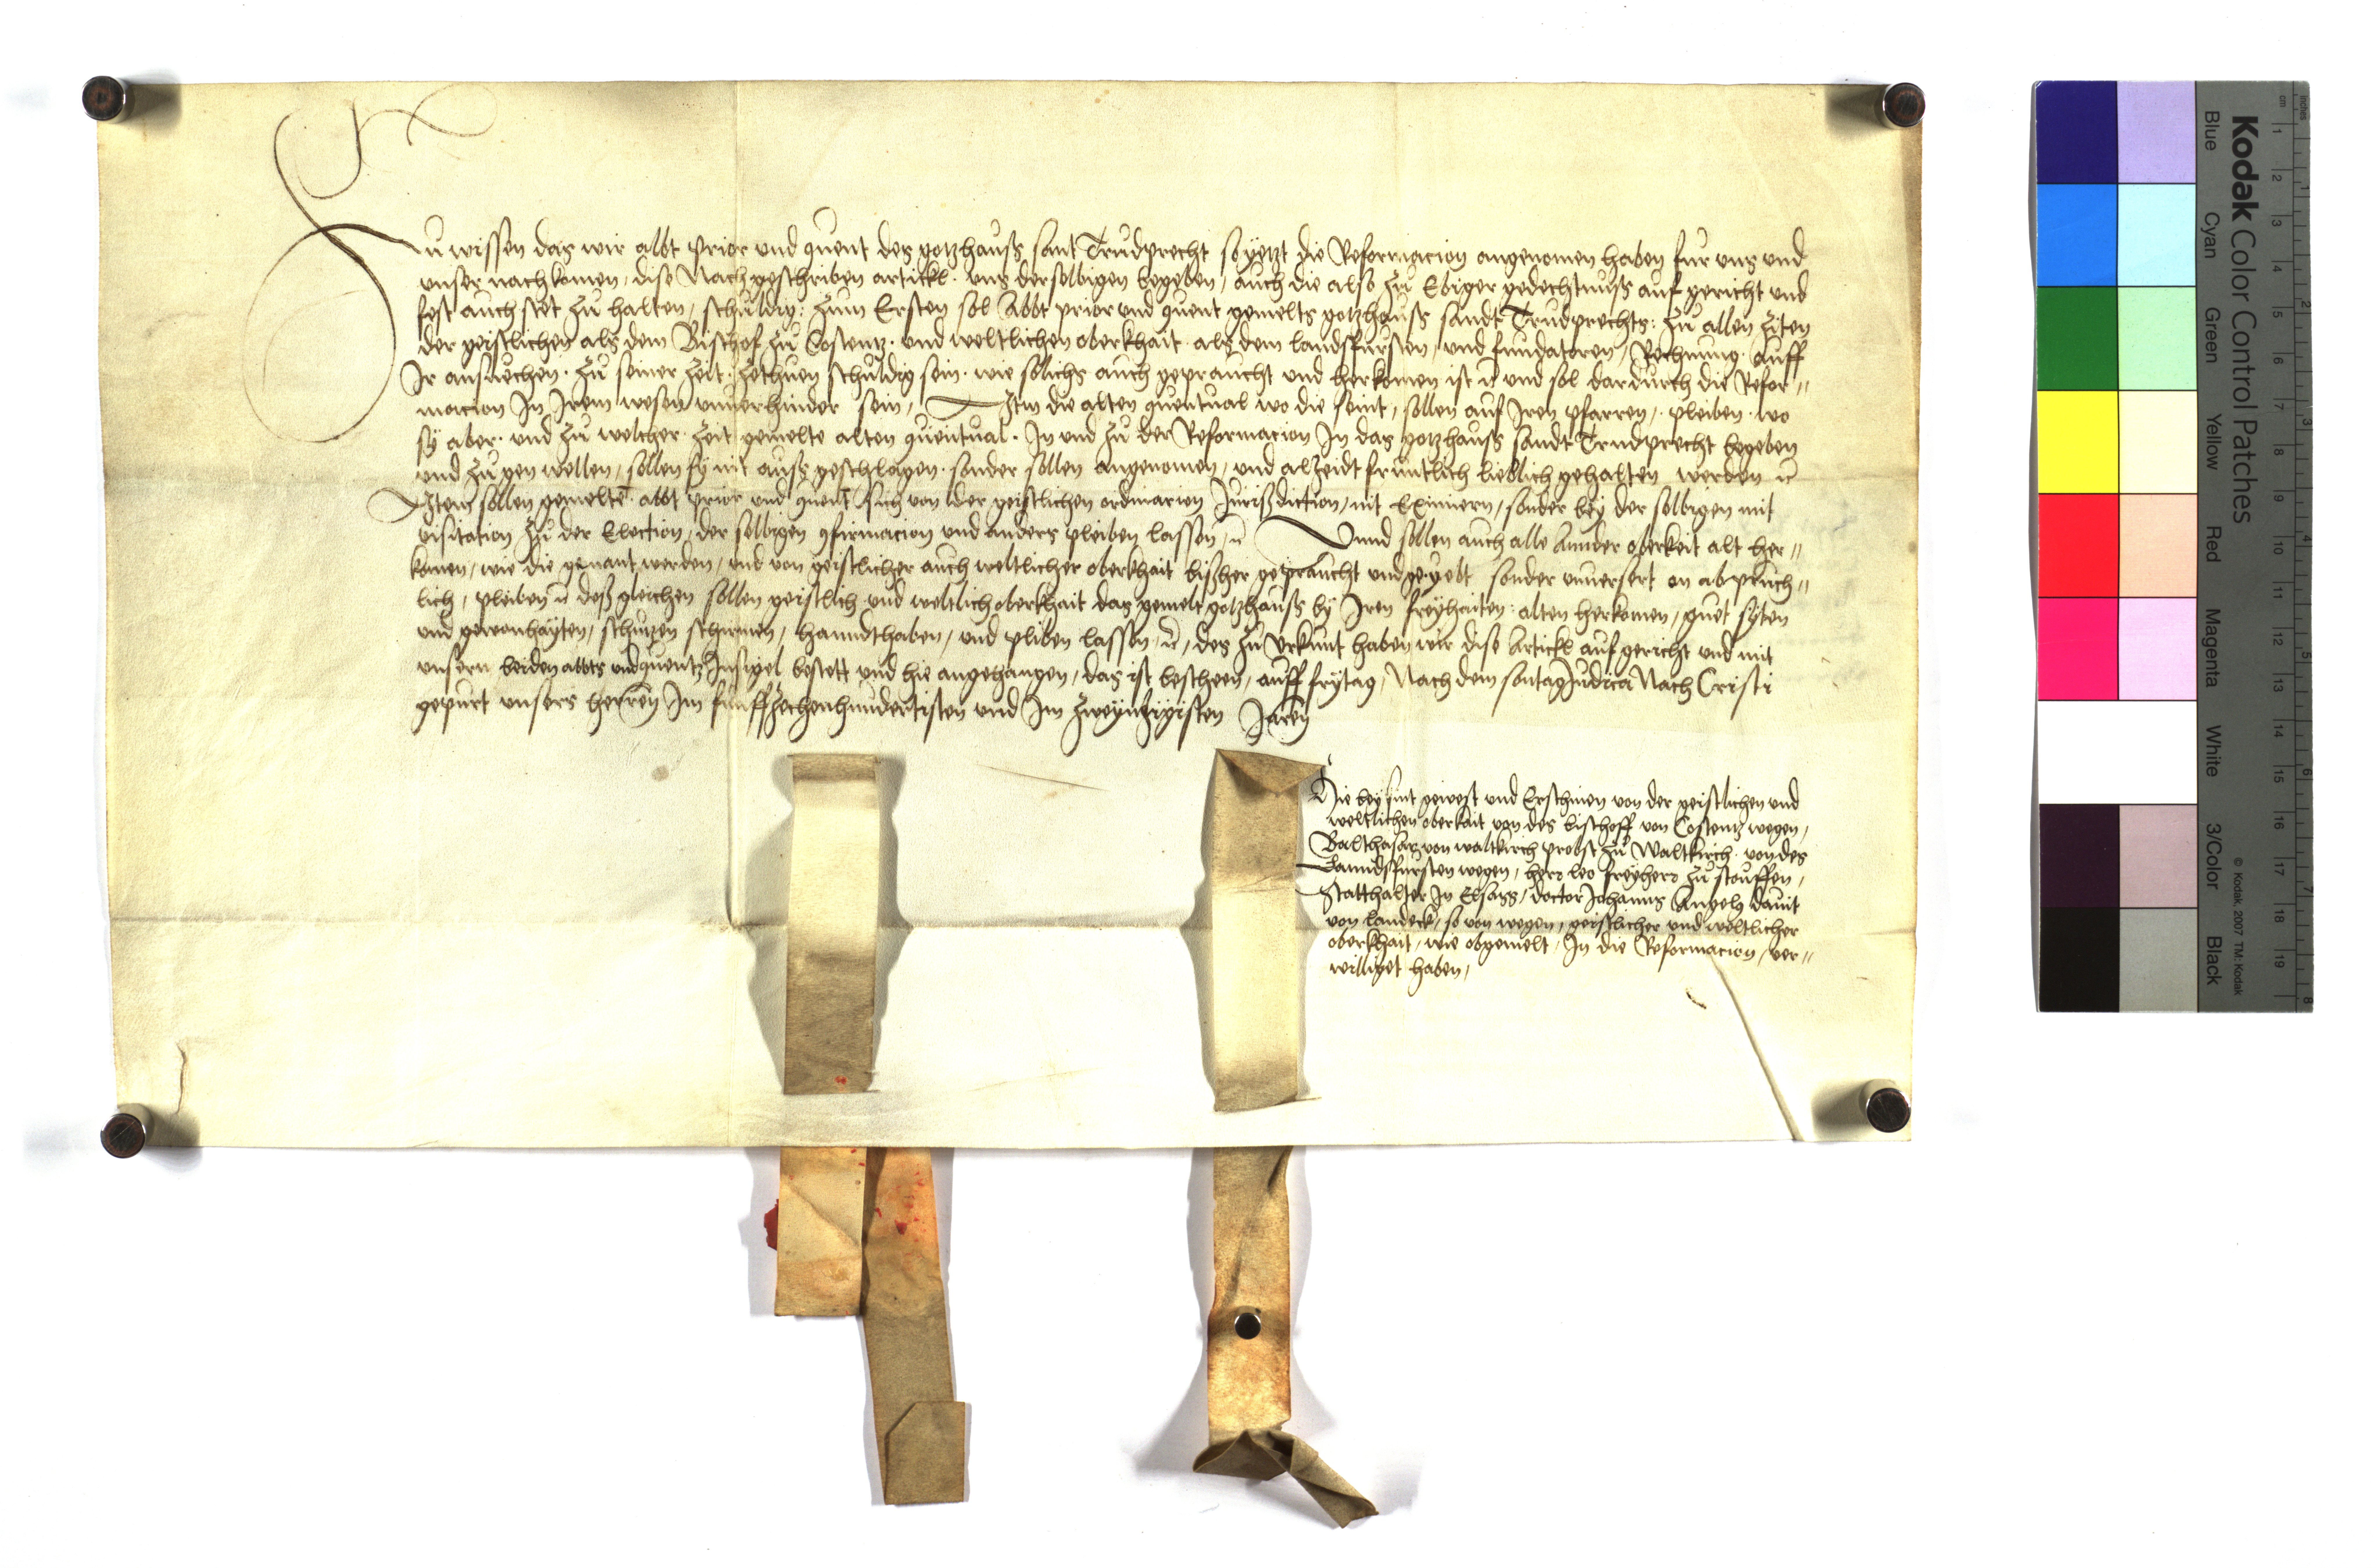 Zu wissen das wir abbt prior und quent des gotzhauß sant Trudprecht so yetzt die Reformacion angenomen haben fur uns und
unser nachkomen, dise Nachgeschriben artickl. uns derselbigen begeben, auch die also zu Ebiger gedechtnuß auf gericht und
fest auch stet zu halten, schuldig: zum Ersten sol Abbt prior und quent gemelts gotzhauß sandt Trudprechts: zu allen ziten
der geistlichen als dem Bischof zu Costentz. und weltlichen oberkhait als dem landsfursten, und fundatoren, Rechnung. auff
Ir ansuechen. zu seiner Zeit. zethuen schuldig sein. wie solichs auch gepraucht und herkomen ist und sol dardurch die Refor-
macion In Irem wesen unverhinder sein, Itm die alten quentual wo die seint, sollen auf Iren pfarren, pleiben. wo
sÿ aber. und zu welcher. Zeit gemelte alten quentual. In und zu der Reformacion In das gotzhauß sandt Trudprecht begeben
und zu gen wellen, sollen sÿ nit auß geschlagen. sonder sollen angenomen, und alzeidt fruntlich lieblich gehalten werden
Item sollen gemelte abbt prior und quent sich von der geistlichen ordinarien Jurißdiction, nit Eximiern, sonder bey der selbigen mit
visitation zu der Election, der selbigen 9firmacion und anders pleiben lassen, Unnd sollen auch alle Annder oberkeit alt her-
komen, wie die genant werden, und von geistlicher auch weltlicher oberkhait bißher gepraucht und geyebt sonder unversert on abpruch-
lich, pleiben deßgleichen sollen geistlich und weltlich oberkhait das gemelt gotzhauß bÿ Iren freÿhaiten: alten herkomen, guet syten
und gewonhayten, schutzen schirmen, hanndthaben, und pliben lassen, des zu urkunt haben wir dise Artickl auf gericht und mit
unsern beiden abbts und quents Insigel bestett und hie angehangen, das ist bescheen, auff frytag, Nach dem sontag Judica Nach Cristi
gepurt unsers herren Im funffzechenhundertisten und Im zweyntzigisten Jaren
Hie bey sint gewest und Erschinen von der geistlichen und
weltlichen oberkait von des bischoff von Costentz wegen,
Balthasar von waltkirch probst zu Waltkirch. von des
Lanndsfursten wegen, herr leo freyherr zu stouffen,
Statthalter In Elsass, doctor Johanns Angelz Davit
von landeck, so von wegen, geistlicher und weltlicher
oberkhait, wie obgemelt, In die Reformacion, ver-
williget haben,
Kodak Color Control Patches
Blue Cyan Green Yellow Red Magenta White 3/Color Black
© Kodak, 2007 TM: Kodak
inches
cm
1 2 3 4 5 6 7 8 9 10 11 12 13 14 15 16 17 18 19
1 2 3 4 5 6 7 8